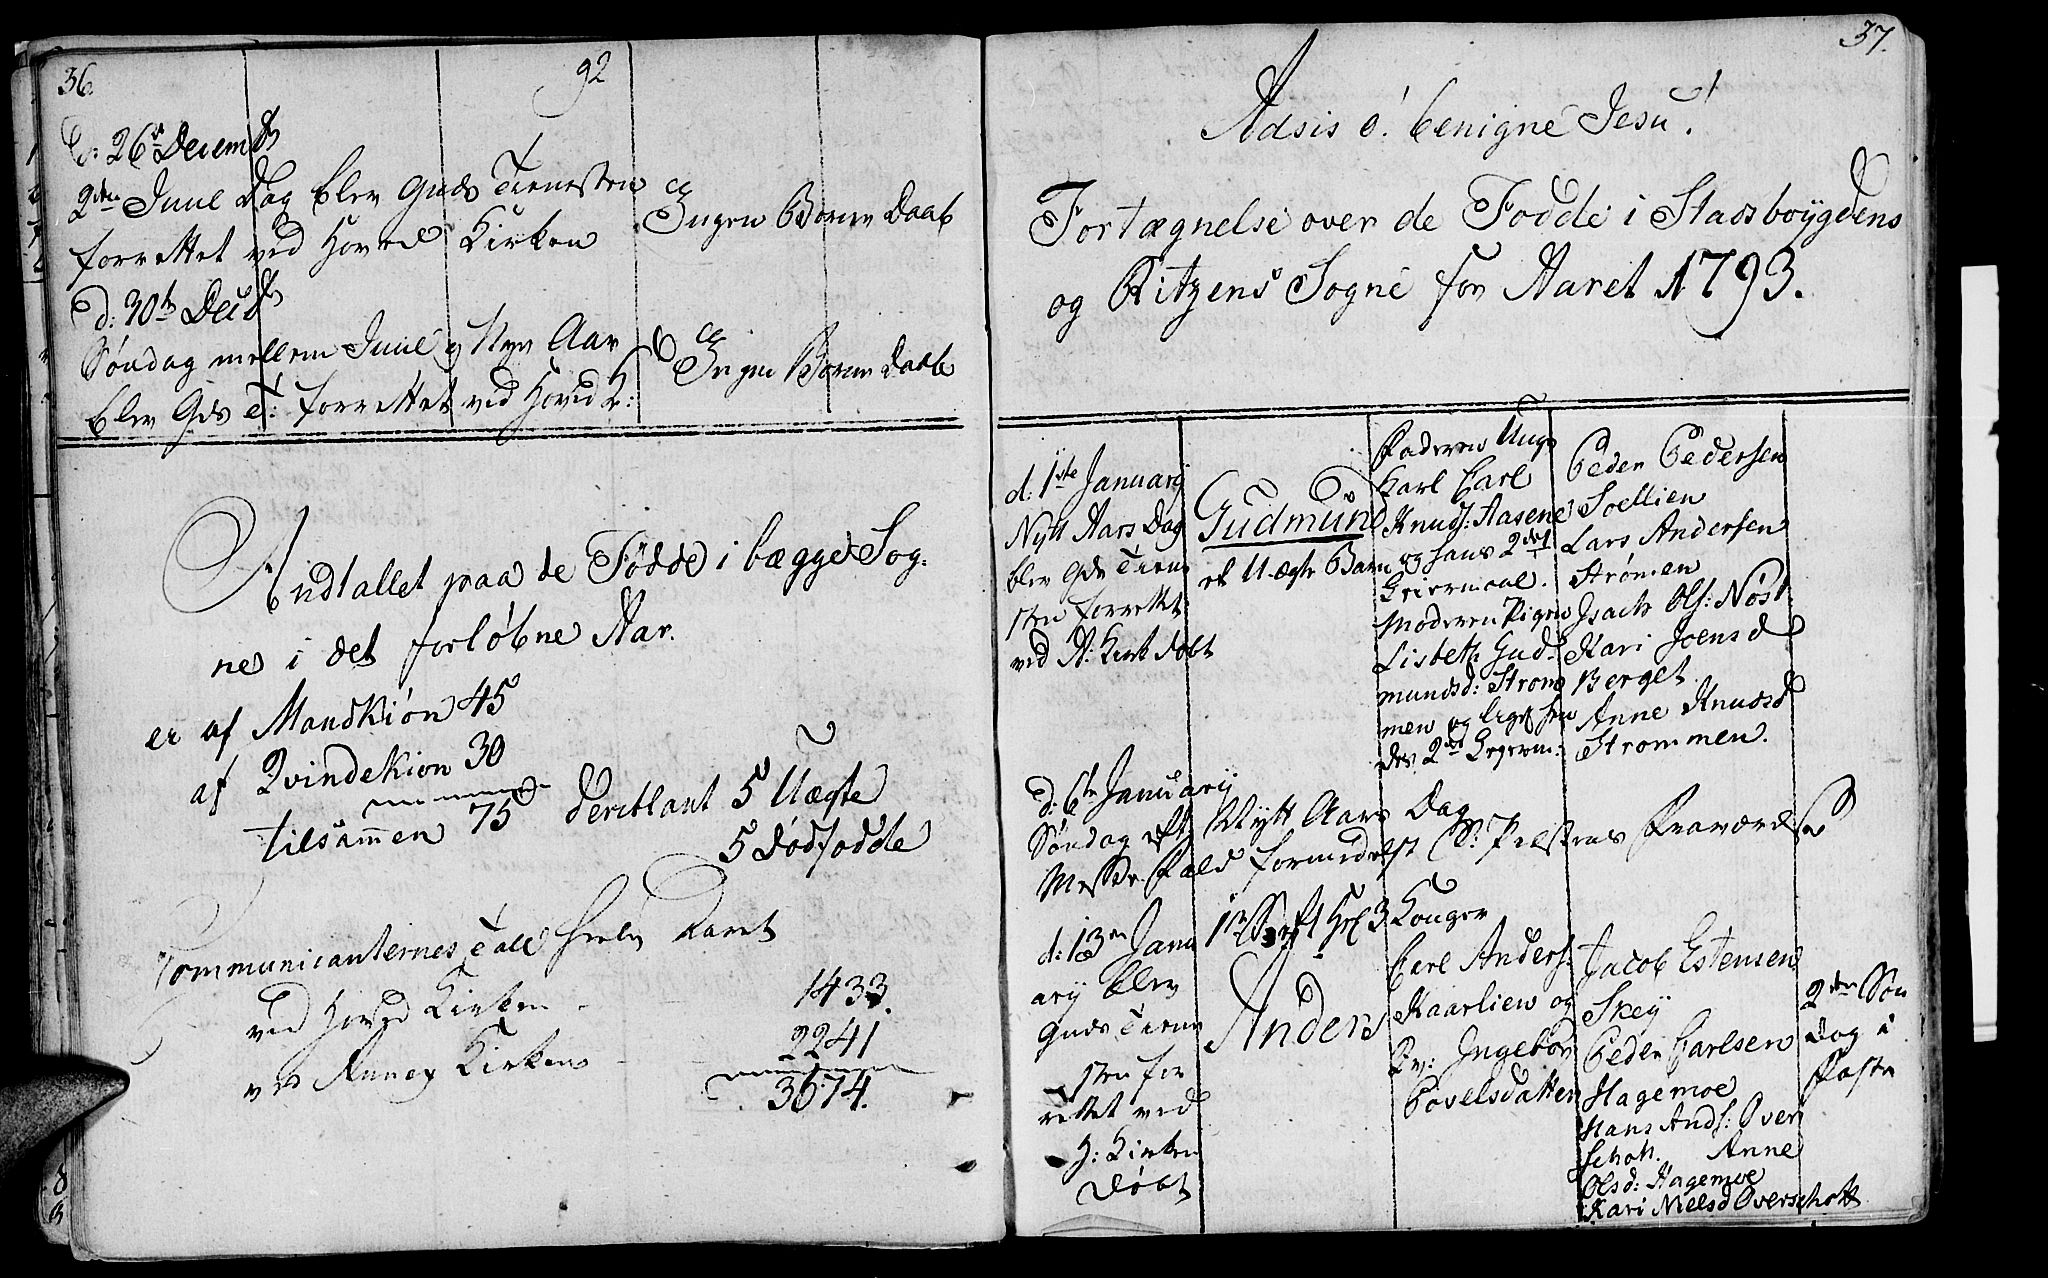 36.
92
d: 26de Decemb
2den Juul Dag blev Guds Tienesten
forrettet ved Hoved Kirken
Ingen Börn Daab
d: 30te Decb
Söndag mellem Juul og Nyt Aar
Ingen Börn Daab
blev Gds T: forrettet ved Hovid K:
Andtallet paa de Födde i bægge Sog-
nes i det forlöbne Aar.
er af Mandkiön 45
af Qvindekion 30
tilsam̄en 75 deriblant 5 Uægte
5 dödfodde
Communicanternes Tall hele Aaret
ved Hoved Kirken - 1433.
ved Annex Kirken - 2241
3674.
37.
Adsis ó! benigne Jesu!
Fortægnelse over de Fodde i Stadsboygdens
og Ritzens Sogne for Aaret 1793.
d: 1ste Januarij
Nytt Aars Dag
blev Gds Tiene
sten forrettet
ved A: Kirk döbt
Gudmund
et U-ægte Barn
Faderen Ung
Karl Carl
Knuds: Aasene
og hans 2det
Leiermaal.
Moderen Pigen
Lisbeth Gud-
mundsd: Strom
men og ligesaa
des 2det Legerm:
Peder Pedersen
Soellien
Lars Andersen
Strömen
Isach Ols: Nöst
Kari Joensd
Berget
Anne Knudsd
Strommen.
d: 6te Januarij
Söndag eft Nytt Aars Dag
Messe Fald formedelst S: Præstens Fraværelse
d: 13de Janu
1te S: eft Hel 3 Konger
arij blev
Guds Tiene
sten for
rettet ved
H: Kirken
döbt
Anders
Carl Anders:
Kaarlien og
Qv: Ingebor
Povelsdatter
Jacob Estensen
Skey
Peder Carlsen
Hagemoe
Hans Ands: Over
schott. Anne
Olsd: Hagemoe
Kari Nielsd Overschott
2den Sön
dag i
Faste